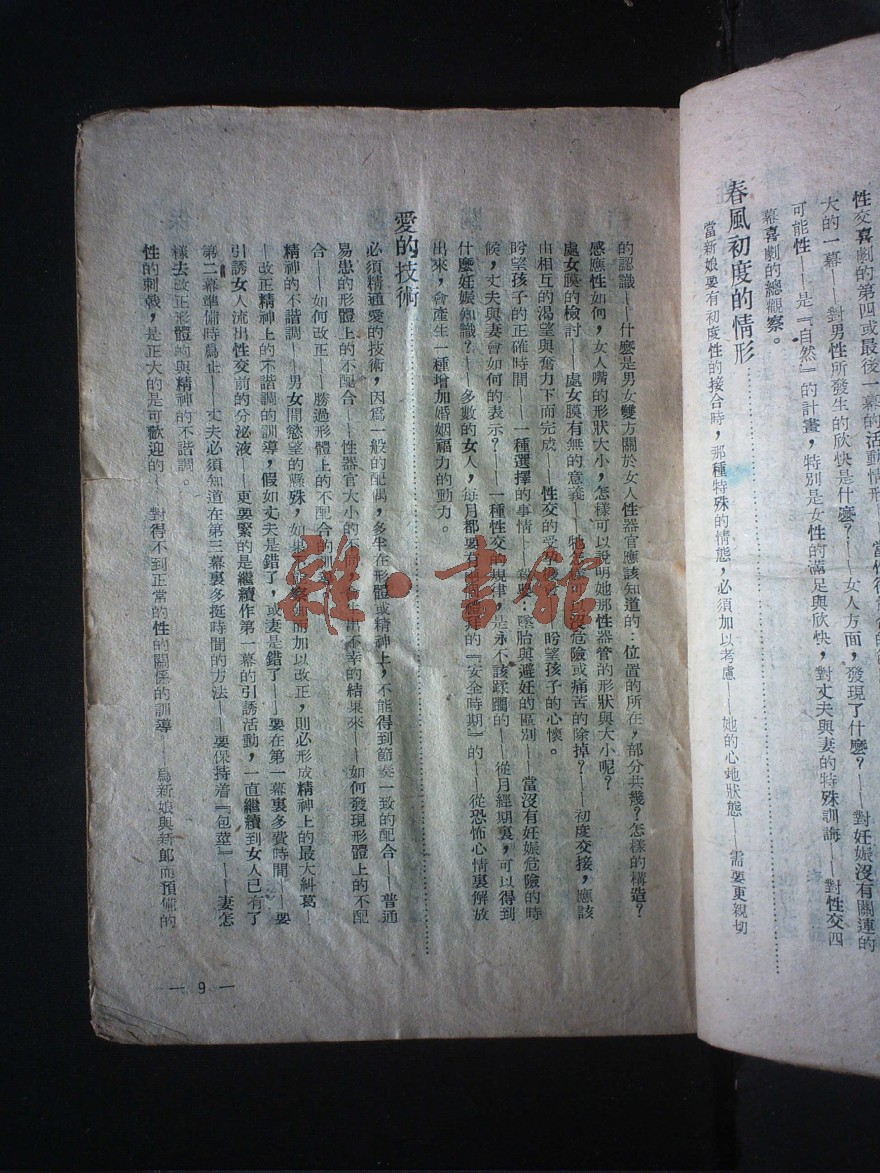 性交喜劇的第四或最後一幕的活動情形——
大的一幕——對男性所發生的欣快是什麼？——女人方面，發現了什麼？——對妊娠沒有關連的
可能性——是『自然』的計畫，特別是女性的滿足與欣快，對丈夫與妻的特殊訓誨——對性交四
幕喜劇的總觀察。
春風初度的情形
當新娘要有初度性的接合時，那種特殊的情態，必須加以考慮——她的心地狀態——需要更親切
的認識——什麼是男女雙方關於女人性器官應該知道的：位置的所在，部分共幾？怎樣的構造？
感應性如何，女人嘴的形狀大小，怎樣可以說明她那性器管的形狀與大小呢？
處女膜的檢討——處女膜有無的意義——可以沒危險或痛苦的除掉？——初度交接，應該
由相互的渴望與奮力下而完成——性交的——盼望孩子的心懷。
盼望孩子的正確時間——一種選擇的事情——墜胎與避妊的區別——當沒有妊娠危險的時
候，丈夫與妻會如何的表示？——一種性交的規律，是永不該蹂躪的——從月經期裏，可以得到
什麼妊娠知識？——多數的女人，每月都要有的『安全時期』的——從恐怖心情裏解放
出來，會產生一種增加婚姻福力的動力。
愛的技術
必須精通愛的技術，因爲一般的配偶，多半在形體或精神上，不能得到節奏一致的配合——普通
易患的形體上的不配合——性器官大小的不不幸的結果來——如何發現形體上的不配
合——如何改正——勝過形體上的不配合的訓導
精神的不諧調——男女間慾望的懸殊，如果而加以改正，則必形成精神上的最大糾葛—
—改正精神上的不諧調的訓導，假如丈夫是錯了，或妻是錯了——要在第一幕裏多費時間——要
引誘女人流出性交前的分泌液——更要緊的是繼續作第一幕的引誘活動，一直繼續到女人已有了
第二幕準備時爲止——丈夫必須知道在第三幕裏多挺時間的方法——要保持着『包莖』——妻怎
樣去改正形體的與精神的不諧調。
性的刺戟，是正大的是可歡迎的——對得不到正常的性的關係的訓導——爲新娘與新郎而預備的
— 9 —
雜·書館